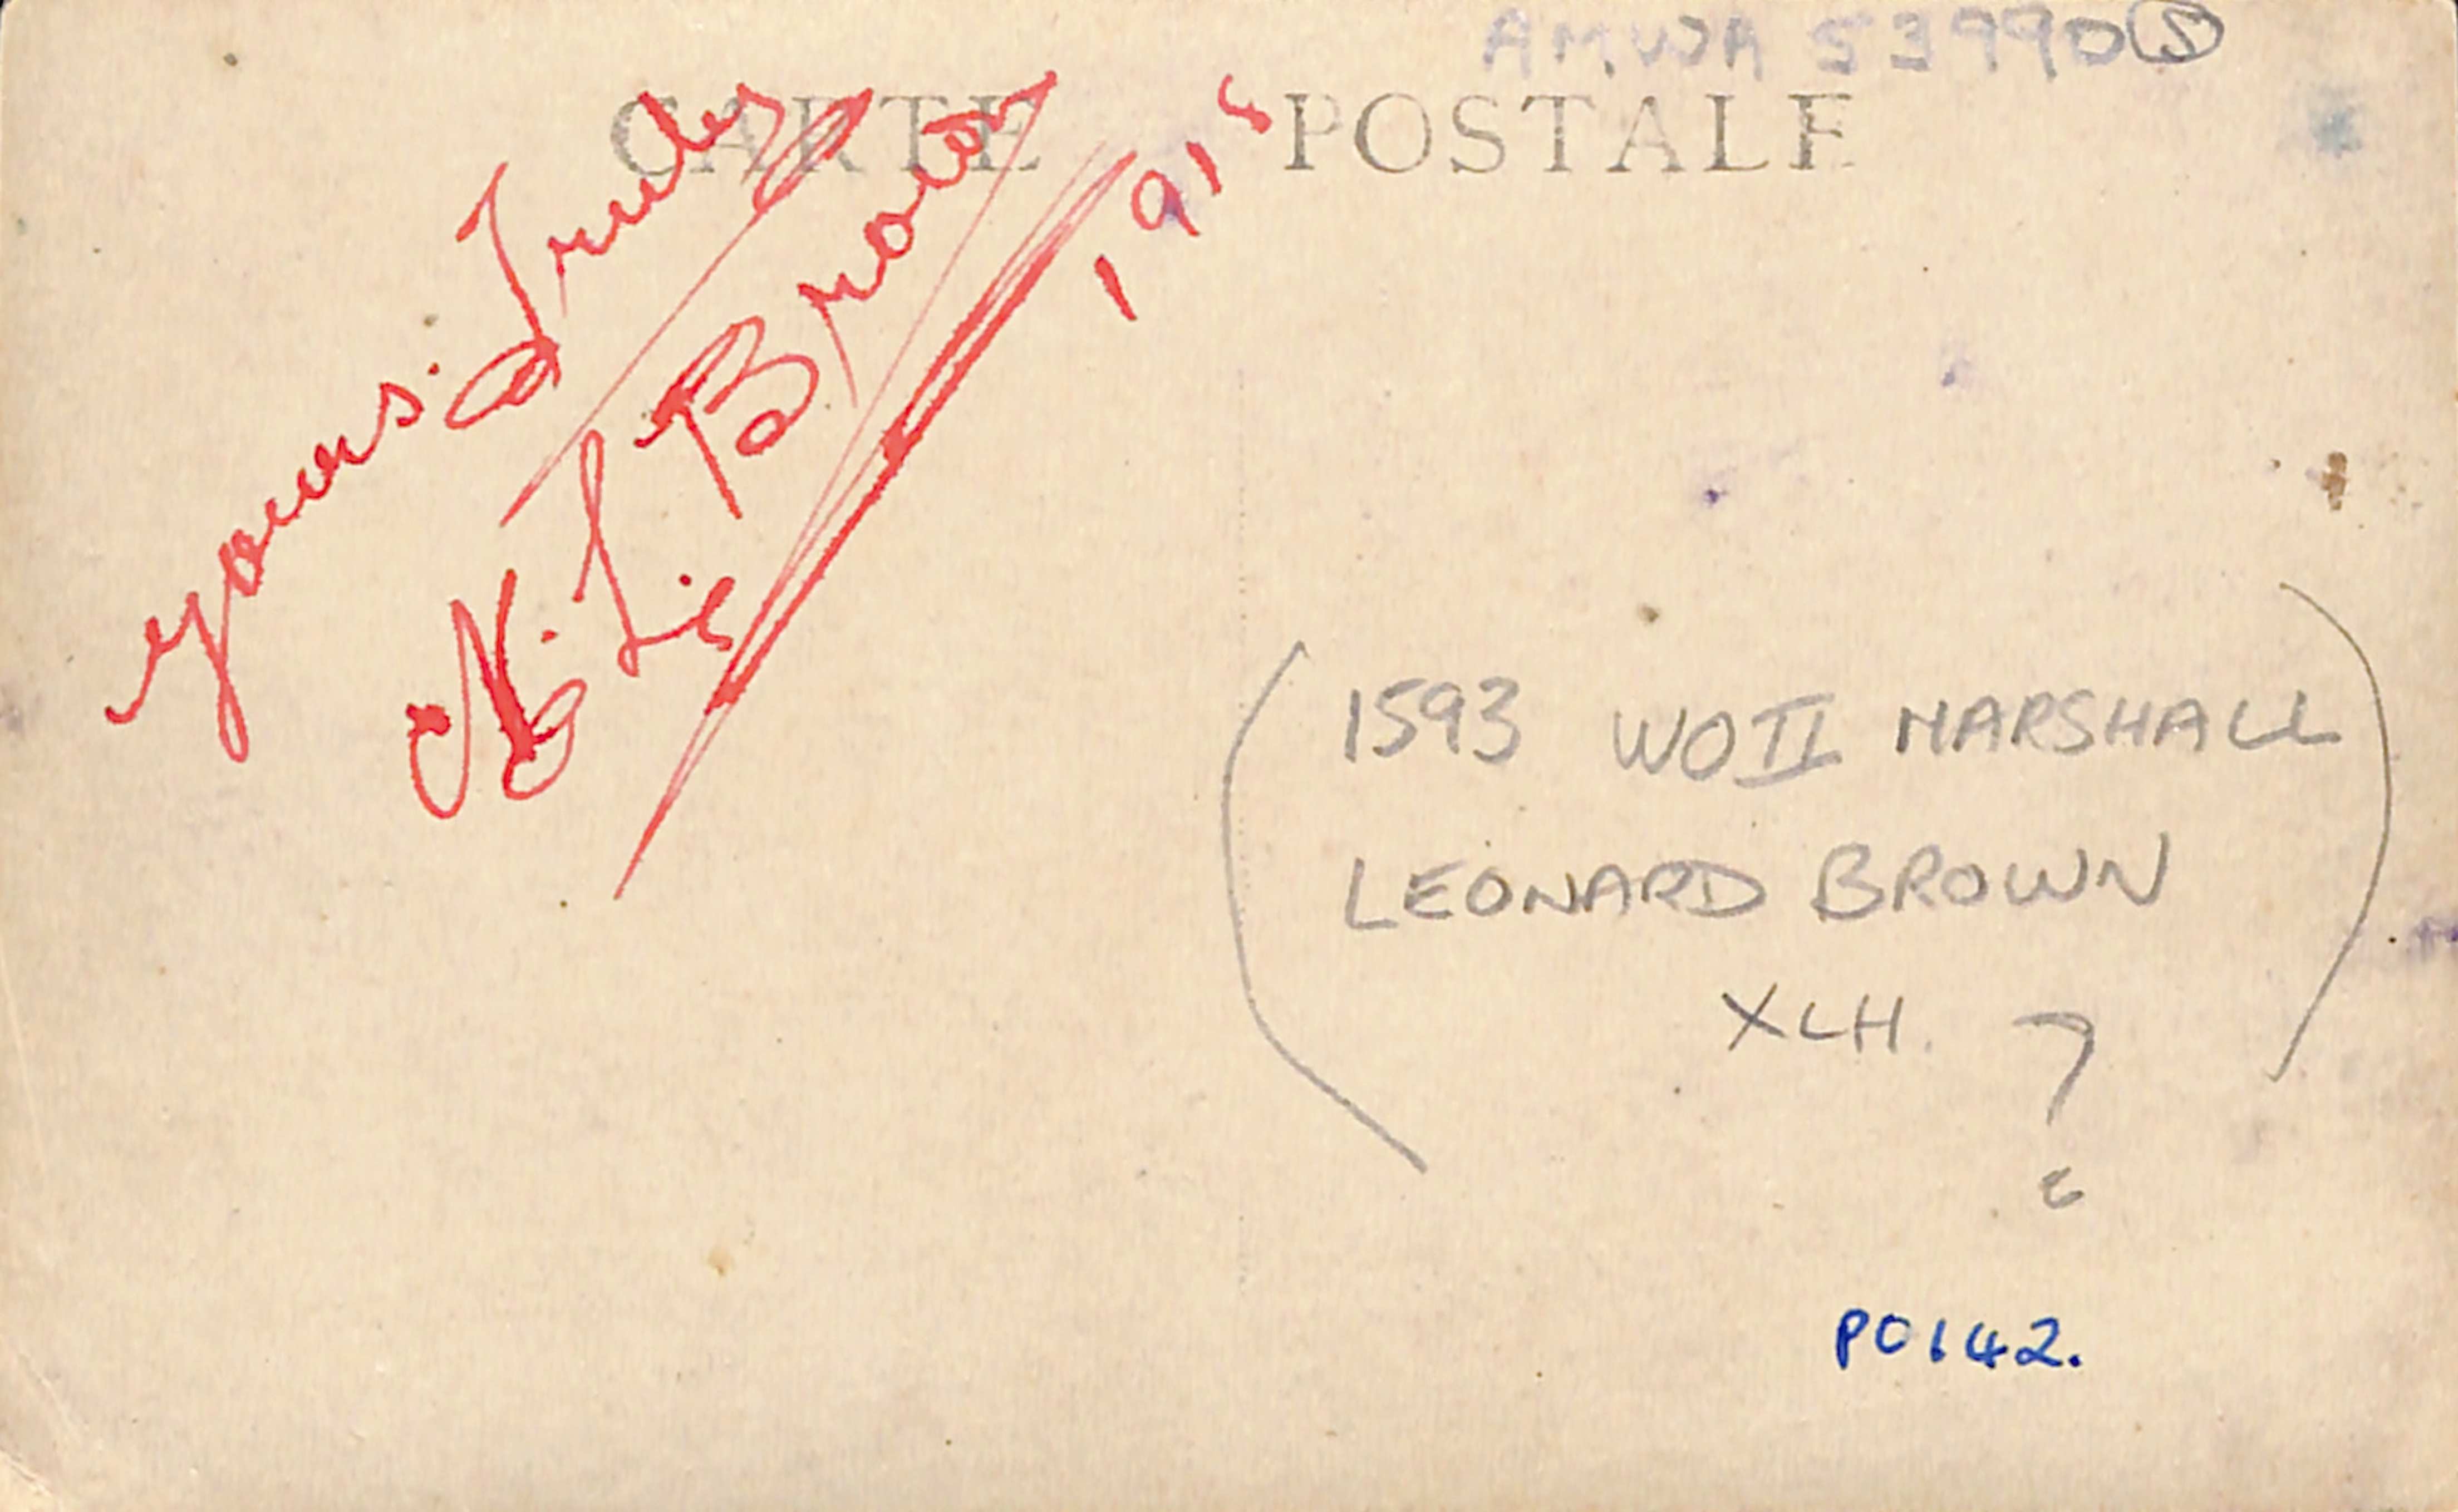 AMWA 53990 S
CARTE POSTALE
yours Truly
Brown
191
(1593 WOII MARSHALL
LEONARD BROWN
XLH. ?)
P0142.